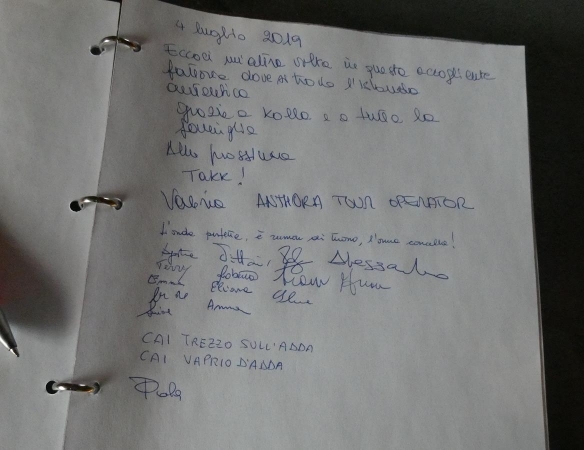 4 luglio 2019
Eccoci un'altra volta in questa accogliente
fattoria dove si trova l'Islanda
autentica
Grazie a Kolla e a tutta la
famiglia
Alla prossima
TAKK!
Valeria ANTHORA TOUR OPERATOR
L'onda perfetta, è rumor di tuono,
Alessandro
Terry Roberto
Emma Eliana
Anna
CAI TREZZO SULL'ADDA
CAI VAPRIO D'ADDA
Paola